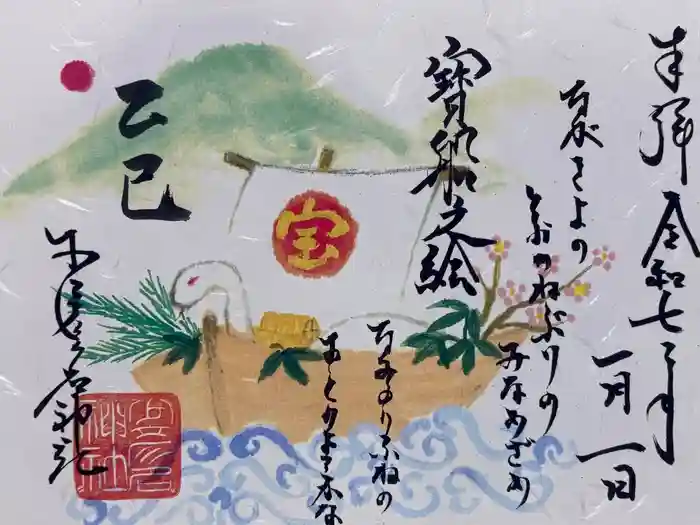 奉拝 令和七年
一月一日
寳船之絵
なかきよの
とおのねふりの
みなめざめ
なみのりふねの
おとのよきかな
宝
乙巳
神社